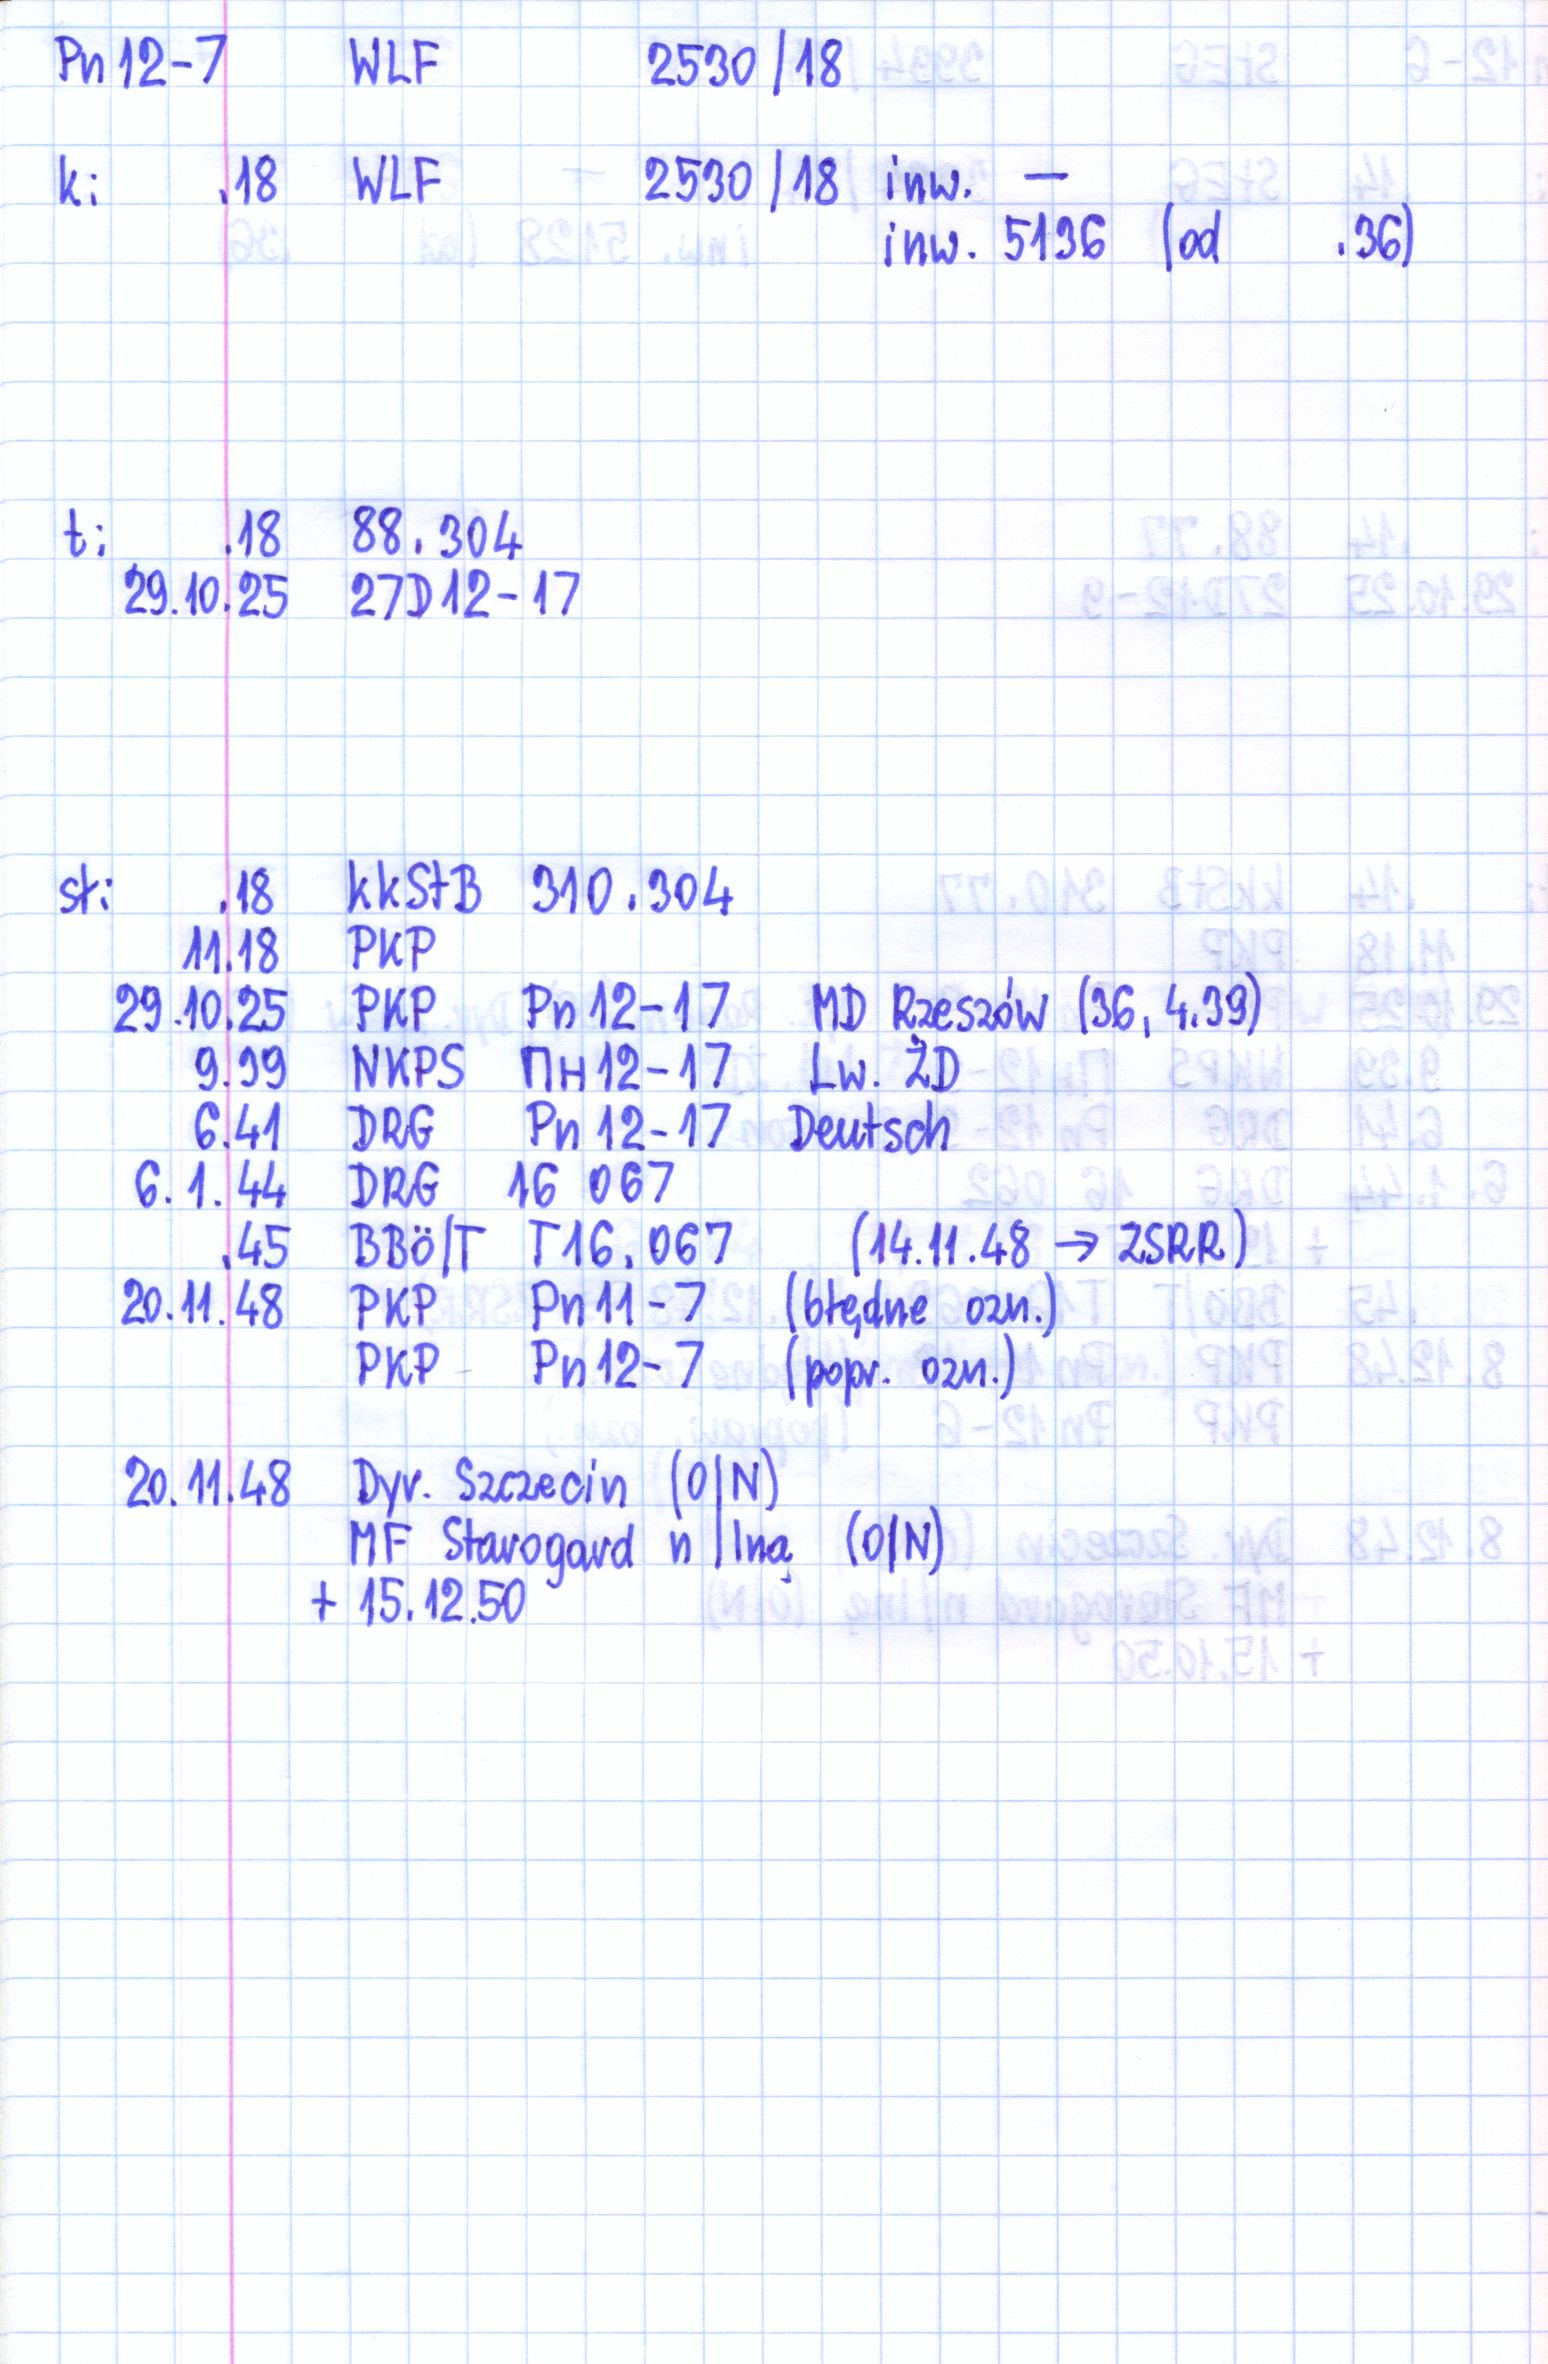 Pn 12-7 WLF 2530/18
k: .18 WLF 2530/18 inw. —
inw. 5136 (od .36)
t: .18 88.304
29.10.25 27D12-17
st: .18 kkStB 310.304
11.18 PKP
29.10.25 PKP Pn 12-17 MD Rzeszów (36, 4.39)
9.39 NKPS Пн 12-17 Lw. ŻD
6.41 DRG Pn 12-17 Deutsch
6.1.44 DRG 16 067
.45 BBö/T T16.067 (14.11.48 → ZSRR)
20.11.48 PKP Pn 11-7 (błędne ozn.)
PKP Pn 12-7 (popr. ozn.)
20.11.48 Dyr. Szczecin (O/N)
MF Starogard n/Iną (O/N)
+ 15.12.50